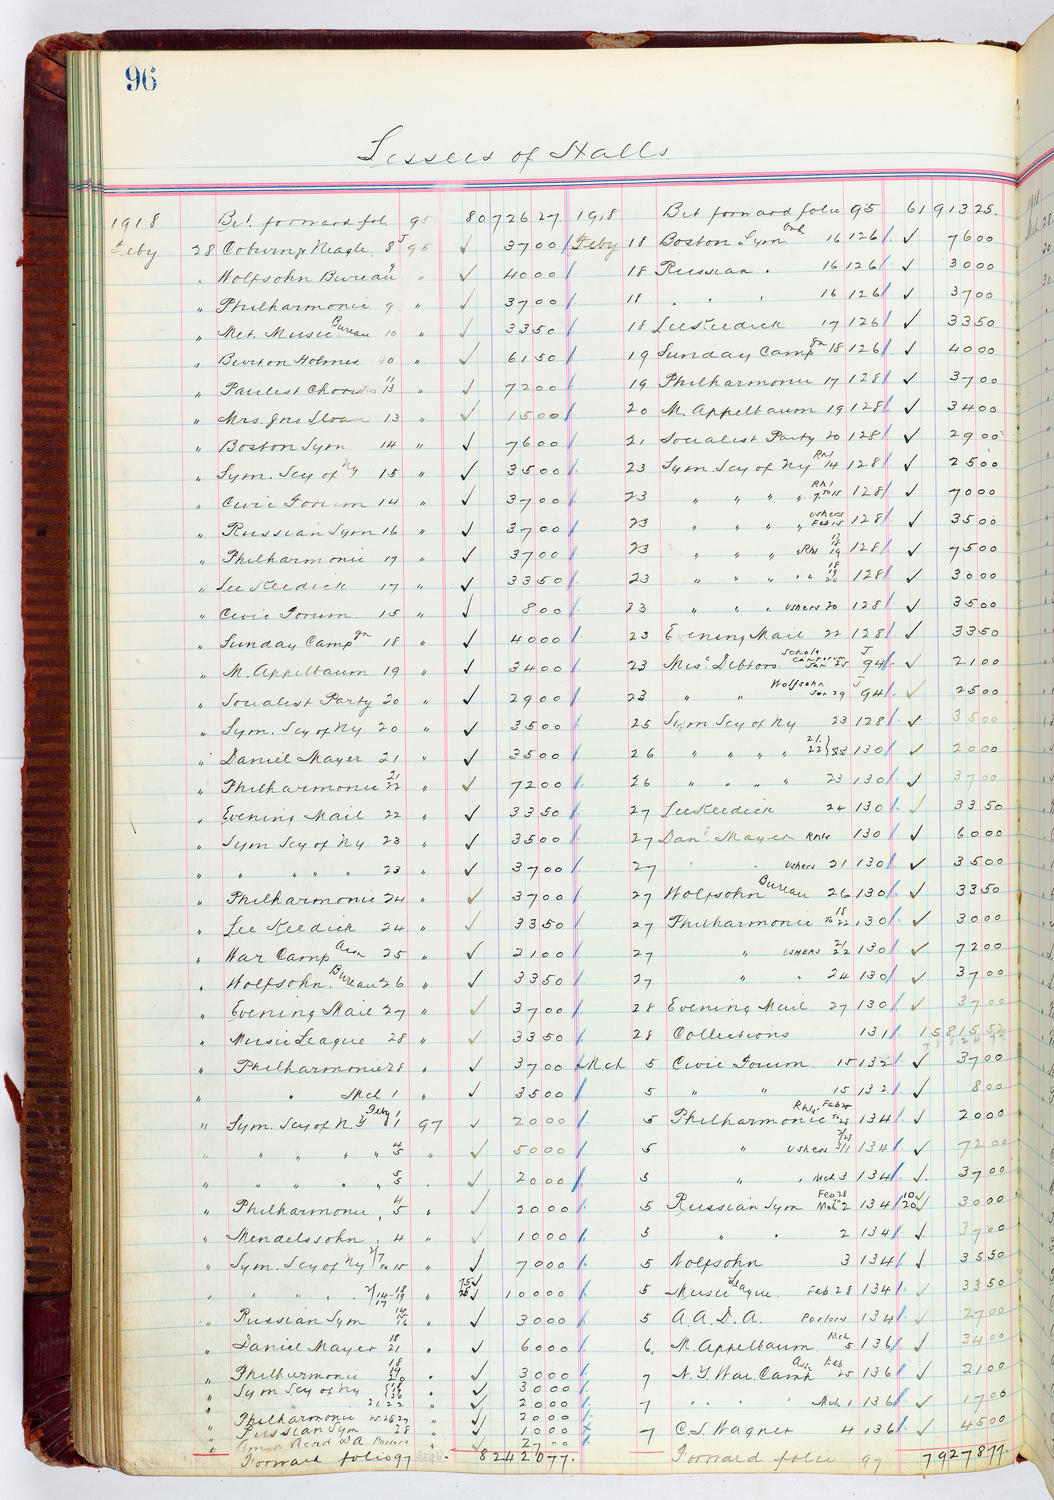 96
Lessees of Halls
1918 Brt forward fol 95 8072627
Feby 28 Coburn & Neagle 8 J 95 ✓ 3700
" Wolfsohn Bureau 9 " ✓ 4000
" Philharmonic 9 " ✓ 3700
" Met. Music Bureau 10 " ✓ 3350
" Burton Holmes 10 " ✓ 6150
" Paulist Choristers 11 13 " ✓ 7200
" Mrs. Jno Sloan 13 " ✓ 1500
" Boston Sym 14 " ✓ 7600
" Sym. Scy of Ny 15 " ✓ 3500
" Civic Forum 14 " ✓ 3700
" Russian Sym 16 " ✓ 3700
" Philharmonic 17 " ✓ 3700
" Lee Keedick 17 " ✓ 3350
" Civic Forum 15 " ✓ 800
" Sunday Campgn 18 " ✓ 4000
" M. Appelbaum 19 " ✓ 3400
" Socialist Party 20 " ✓ 2900
" Sym. Scy of Ny 20 " ✓ 3500
" Daniel Mayer 21 " ✓ 3500
" Philharmonic 21 22 " ✓ 7200
" Evening Mail 22 " ✓ 3350
" Sym Scy of Ny 23 " ✓ 3500
" " " " " 23 " ✓ 3700
" Philharmonic 24 " ✓ 3700
" Lee Keedick 24 " ✓ 3350
" War Camp Assn 25 " ✓ 2100
" Wolfsohn Bureau 26 " ✓ 3350
" Evening Mail 27 " ✓ 3700
" Music League 28 " ✓ 3350
" Philharmonic 28 " ✓ 3700
" " Mch 1 " ✓ 3500
" Sym. Scy of N.Y Feby 1 97 ✓ 2000
" " " " " " 4 5 " ✓ 5000
" " " " " 5 5 " ✓ 2000
" Philharmonic 4 5 " ✓ 2000
" Mendelssohn 4 " ✓ 1000
" Sym. Scy of Ny 2/7 To 15 " ✓ 7000
" " " " 2/14-18 17-19 " 75✓ 25✓ 10000
" Russian Sym 14 15 16 " ✓ 3000
" Daniel Mayer 18 21 " ✓ 6000
" Philharmonic 18 19 20 " ✓ 3000
" Sym Scy of Ny " ✓ 3000
" 21.22 " ✓ 2000
" Philharmonic " ✓ 2000
" Russian Sym 28 " ✓ 1000
" Acad Parlors " ✓ 2700
Forward folio 97 8242077.
1918 Brt forward folio 95 6191325
Feby 18 Boston Sym Orch 16 126 ✓ 7600
18 Russian " 16 126 ✓ 3000
18 " " " 16 126 ✓ 3700
18 Lee Keedick 17 126 ✓ 3350
19 Sunday Campgn 18 126 ✓ 4000
19 Philharmonic 17 128 ✓ 3700
20 M. Appelbaum 19 128 ✓ 3400
21 Socialist Party 20 128 ✓ 2900
23 Sym. Scy of Ny Rhl 14 128 ✓ 2500
23 " " " " Rhl 7 to 15 128 ✓ 7000
23 " " " " Ushers Feb 15 128 ✓ 3500
23 " " " " Rhl 17 18 19 128 ✓ 7500
23 " " " " " 18 19 20 128 ✓ 3000
23 " " " Ushers 20 128 ✓ 3500
23 Evening Mail 22 128 ✓ 3350
23 Misc Debtors Schola Cantorum Jan 25 J 94 ✓ 2100
23 " " Wolfsohn Jan 29 J 94 ✓ 2500
25 Sym Scy of Ny 23 128 ✓ 3500
26 " " " " 21. 22} 130 ✓ 2000
26 " " " " 23 130 ✓ 3700
27 Lee Keedick 24 130 ✓ 3350
27 Danl Mayer Rhls 130 ✓ 6000
27 " " Ushers 21 130 ✓ 3500
27 Wolfsohn Bureau 26 130 ✓ 3350
27 Philharmonic 18 To 22 130 ✓ 3000
27 " Ushers 21 22 130 ✓ 7200
27 " " 24 130 ✓ 3700
28 Evening Mail 27 130 ✓ 3700
28 Collections 131 1581552
Mch 5 Civic Forum 15 132 ✓ 3700
5 " " 15 132 ✓ 800
5 Philharmonic Rhls. Feb 25 To 28 134 ✓ 2000
5 " Ushers 2/28 3/1 134 ✓ 7200
5 " " Mch 3 134 ✓ 3700
5 Russian Sym Feb 28 Mch 2 134 10✓ 20✓ 3000
5 " " 2 134 ✓ 3700
5 Wolfsohn 3 134 ✓ 3350
5 Music League Feb 28 134 ✓ 3350
5 A.A.D.A. Parlors 134 ✓ 2700
6 M. Appelbaum Mch 5 136 ✓ 3400
7 N.Y. War Camp Assn Feb 25 136 ✓ 2100
7 " " " " Mch 1 136 ✓ 1700
7 C.S. Wagner 4 136 ✓ 4500
Forward folio 97 7927877.